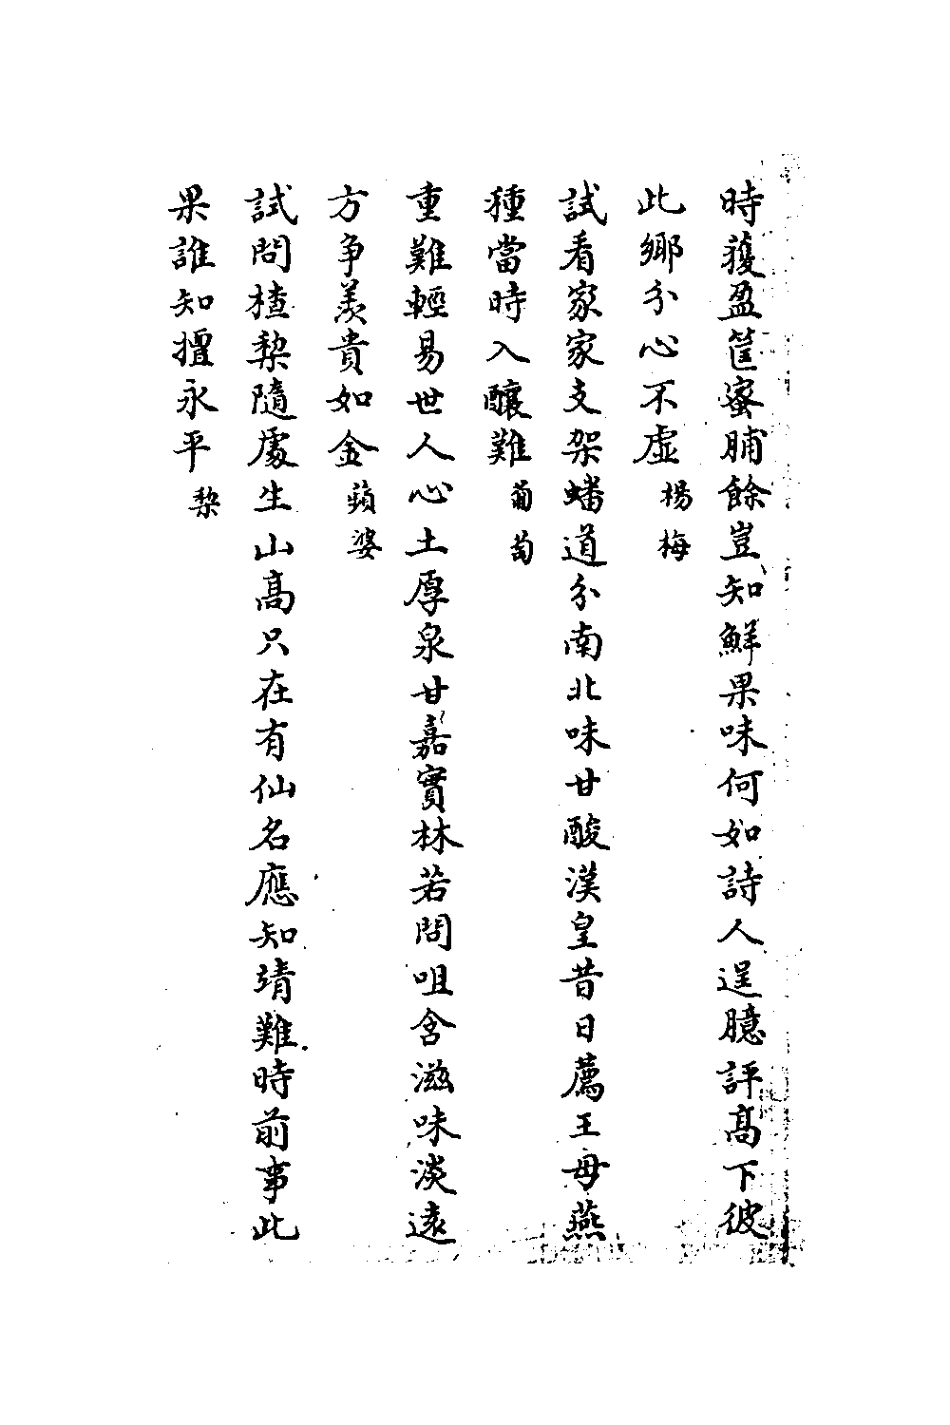 時獲盈筐蜜脯餘豈知鮮果味何如詩人逞臆評髙下彼
此鄉分心不虛楊梅
試看家家支架蟠道分南北味甘酸漢皇昔日薦王母燕
種當時入釀難葡萄
重難輕易世人心土厚泉甘嘉實林若問咀含滋味淡遠
方爭羨貴如金蘋婆
試問楂棃隨處生山髙只在有仙名應知靖難時前事此
果誰知擅永平棃